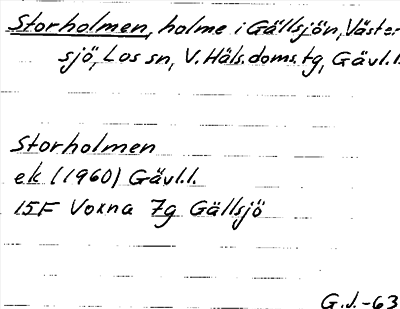 Storholmen, holme i Gällsjön, Väster-
sjö, Los sn, V. Häls. doms. tg, Gävl.l.
Storholmen
ek (1960) Gävl.l.
15F Voxna 7g Gällsjö
G.J.-63